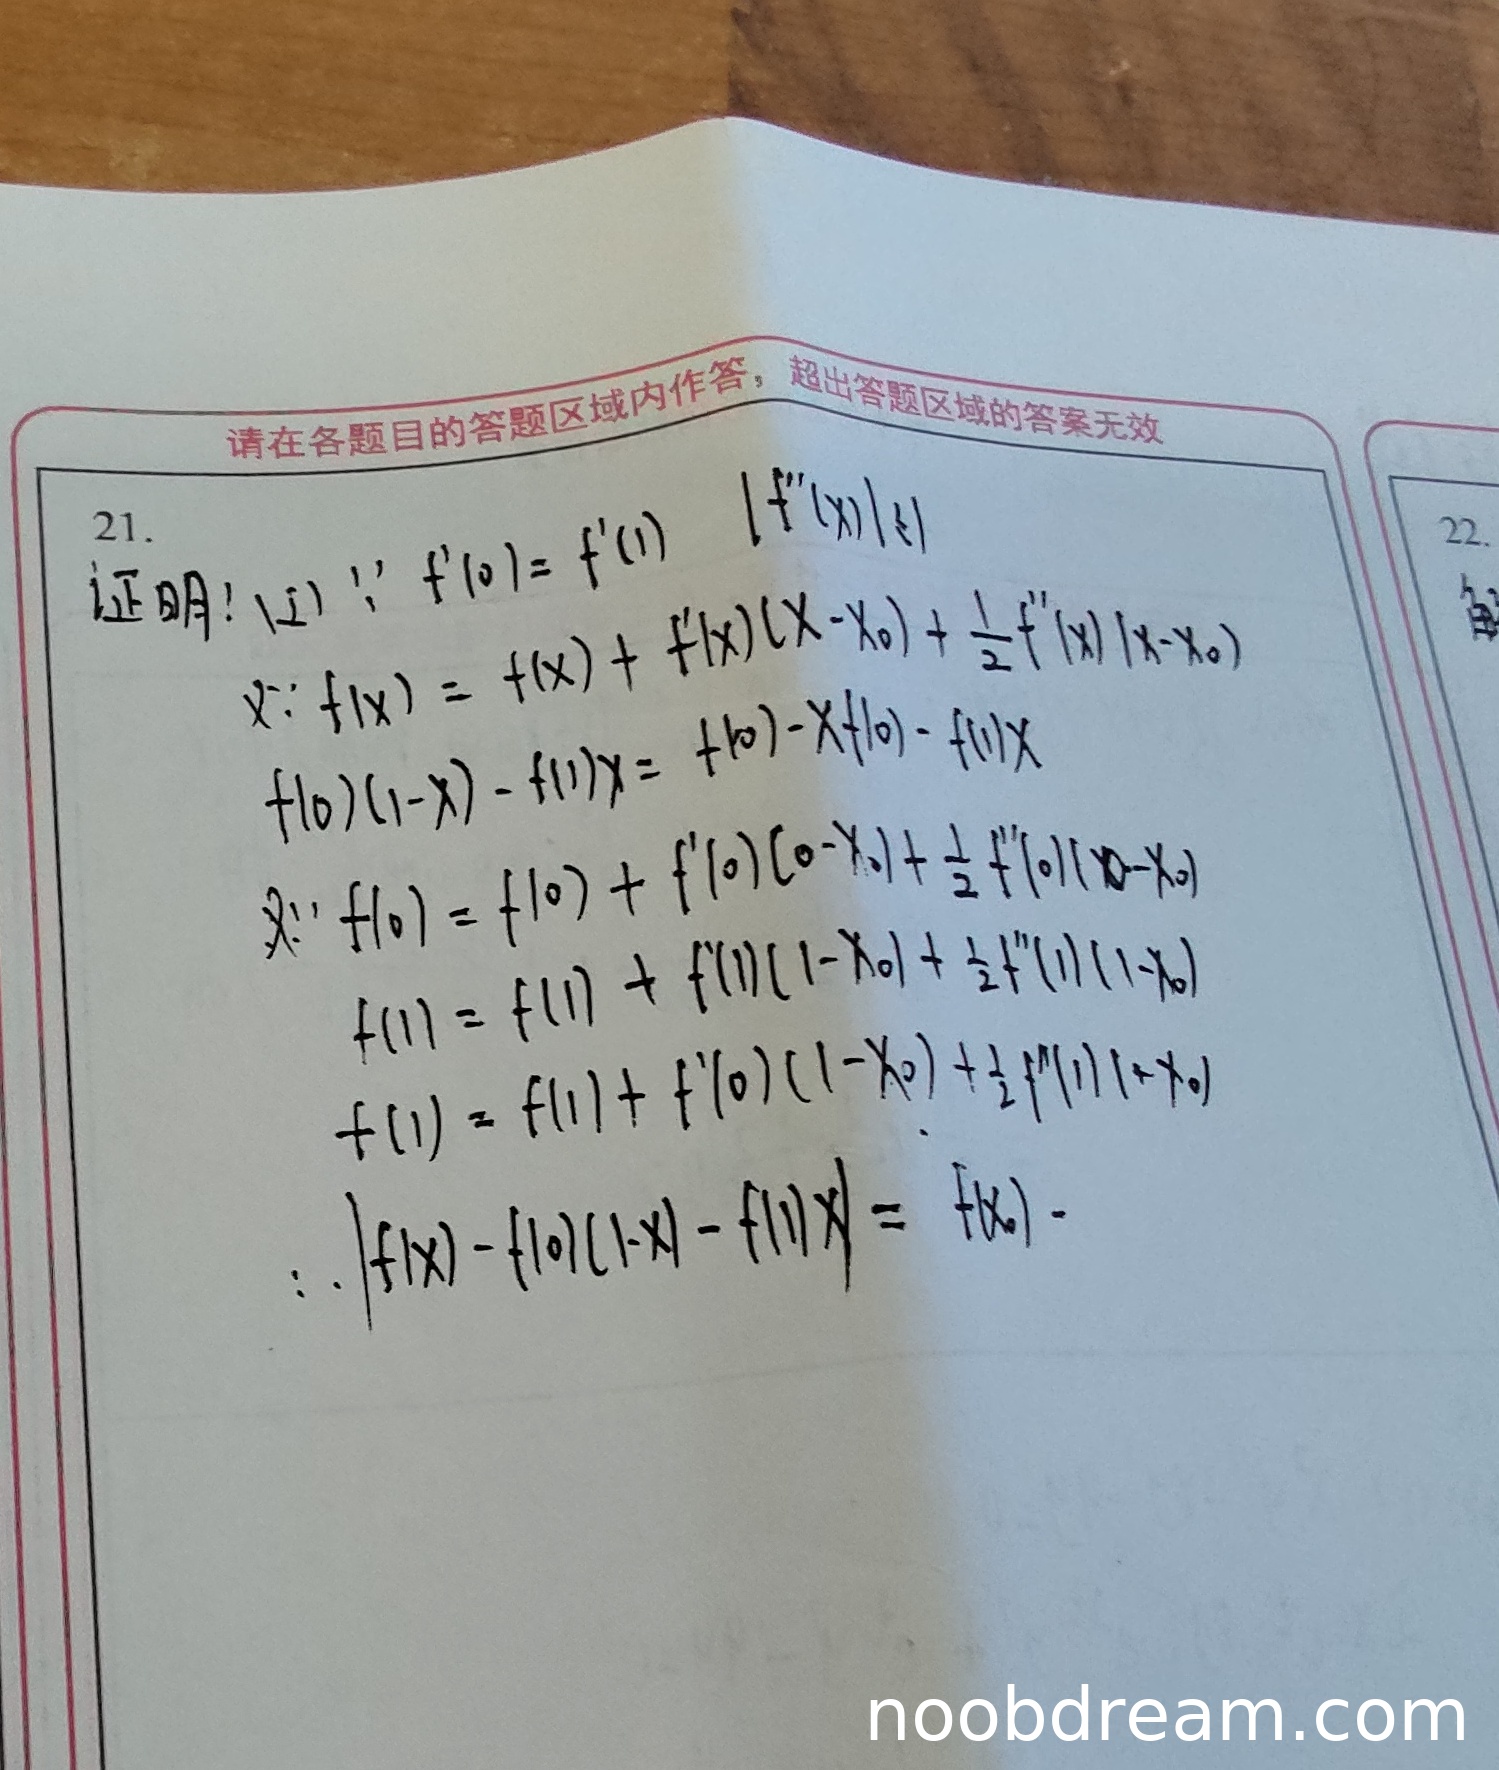 请在各题目的答题区域内作答，超出答题区域的答案无效
21.
证明: (1) ∵ f'(0) = f'(1) |f''(x)|≤1
又∵ f(x) = f(x) + f'(x)(x-x₀) + 1/2 f''(x)(x-x₀)
f(0)(1-x) - f(1)x = f(0) - xf(0) - f(1)x
又∵ f(0) = f(0) + f'(0)(0-x₀) + 1/2 f''(0)(0-x₀)
f(1) = f(1) + f'(1)(1-x₀) + 1/2 f''(1)(1-x₀)
f(1) = f(1) + f'(0)(1-x₀) + 1/2 f''(1)(1-x₀)
∴ |f(x) - f(0)(1-x) - f(1)x| = f(x₀) -
22.
解
noobdream.com